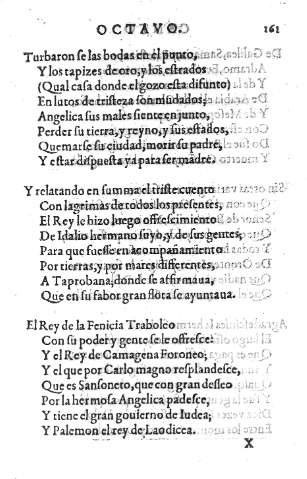 OCTAVO. 161
Turbaron se las bodas en el punto,
Y los tapizes de oro, y los estrados
(Qual casa donde el gozo esta difunto)
En lutos de tristeza son mudados,
Angelica sus males siente en junto,
Perder su tierra, y reyno, y sus estados,
Quemarse su ciudad, morir su padre,
Y estar dispuesta ya para ser madre.
Y relatando en summa el triste cuento
Con lagrimas de todos los presentes,
El Rey le hizo luego offrescimiento
De Idalio hermano suyo, y de sus gentes,
Para que fuesse en acompañamiento
Por tierras, y por mares differentes,
A Taprobana, donde se affirmaua,
Que en su fabor gran flota se ayuntaua.
El Rey de la Fenicia Traboleo
Con su poder y gente se le offresce:
Y el Rey de Camagena Foroneo;
Y el que por Carlo magno resplandesce,
Que es Sansoneto, que con gran desseo
Por la hermosa Angelica padesce,
Y tiene el gran gouierno de Iudea;
Y Palemon el rey de Laodicea.
X